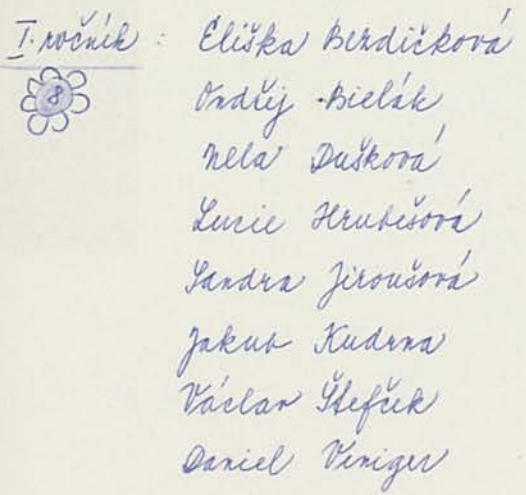 I. ročník : Eliška Bezdíčková
8 Ondřej Bielák
Nela Dušková
Lucie Hrubešová
Sandra Jiroušová
Jakub Kudrna
Václav Štefek
Daniel Veniger